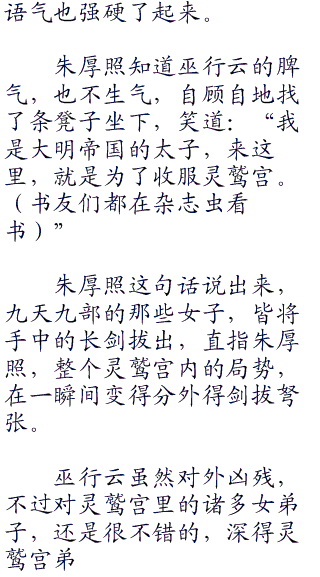 语气也强硬了起来。
朱厚照知道巫行云的脾
气，也不生气，自顾自地找
了条凳子坐下，笑道：“我
是大明帝国的太子，来这
里，就是为了收服灵鹫宫。
（书友们都在杂志虫看
书）”
朱厚照这句话说出来，
九天九部的那些女子，皆将
手中的长剑拔出，直指朱厚
照，整个灵鹫宫内的局势，
在一瞬间变得分外得剑拔弩
张。
巫行云虽然对外凶残，
不过对灵鹫宫里的诸多女弟
子，还是很不错的，深得灵
鹫宫弟